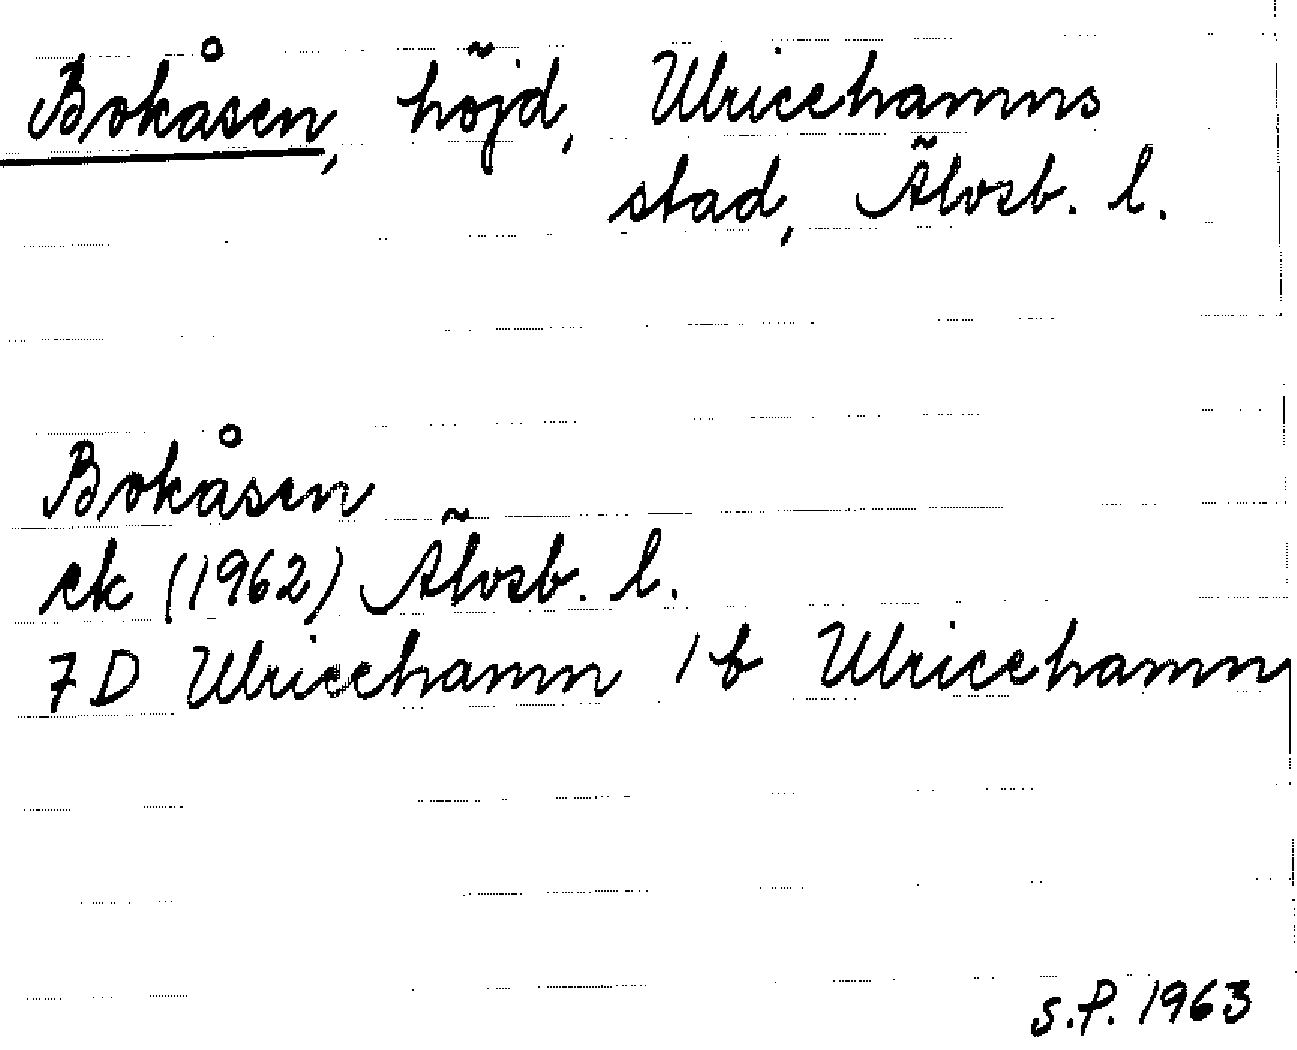 Bokåsen, höjd, Ulricehamns
stad, Älvsb. l.
Bokåsen
ek (1962) Älvsb. l.
7D Ulricehamn 1b Ulricehamn
S.P. 1963